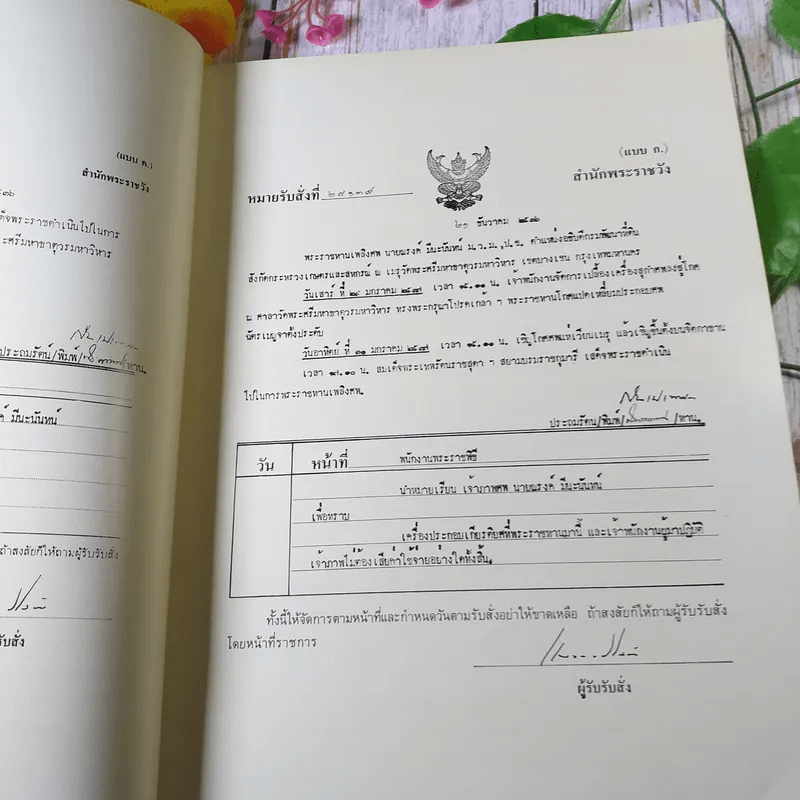 (แบบ ค.)
สำนักพระราชวัง
๒๕๓๖
ด็จพระราชดำเนินไปในการ
ะศรีมหาธาตุวรมหาวิหาร
ประถมรัตน์/พิมพ์/ /ทาน.
ค์ มีนะนันทน์
ถ้าสงสัยก็ให้ถามผู้รับรับสั่ง
รับสั่ง
(แบบ ถ.)
หมายรับสั่งที่ ๒๘๑๓๙
สำนักพระราชวัง
๒๑ ธันวาคม ๒๕๓๖
พระราชทานเพลิงศพ นายณรงค์ มีนะนันทน์ ม.ว.ม.,ป.ช. ตำแหน่งอธิบดีกรมพัฒนาที่ดิน
สังกัดกระทรวงเกษตรและสหกรณ์ ณ เมรุวัดพระศรีมหาธาตุวรมหาวิหาร เขตบางเขน กรุงเทพมหานคร
วันเสาร์ ที่ มกราคม ๒๕๓๗ เวลา น. เจ้าพนักงานจัดการเปลื้องเครื่องสุกำศพลงสู่โกศ
ณ ศาลาวัดพระศรีมหาธาตุวรมหาวิหาร ทรงพระกรุณาโปรดเกล้า ฯ พระราชทานโกศแปดเหลี่ยมประกอบศพ
ฉัตรเบญจาตั้งประดับ
วันอาทิตย์ ที่ ๓๑ มกราคม ๒๕๓๗ เวลา น. เชิญโกศศพแห่เวียนเมรุ แล้วเชิญขึ้นตั้งบนจิตกาธาน
เวลา ๑๗.๑๐ น. สมเด็จพระเทพรัตนราชสุดา ฯ สยามบรมราชกุมารี เสด็จพระราชดำเนิน
ไปในการพระราชทานเพลิงศพ.
ประถมรัตน์/พิมพ์/ /ทาน.
วัน หน้าที่ พนักงานพระราชพิธี
นำหมายเรียน เจ้าภาพศพ นายณรงค์ มีนะนันทน์
เพื่อทราบ
เครื่องประกอบเกียรติยศที่พระราชทานมานี้ และเจ้าพนักงานผู้มาปฏิบัติ
เจ้าภาพไม่ต้องเสียค่าใช้จ่ายอย่างใดทั้งสิ้น.
ทั้งนี้ให้จัดการตามหน้าที่และกำหนดวันตามรับสั่งอย่าให้ขาดเหลือ ถ้าสงสัยก็ให้ถามผู้รับรับสั่ง
โดยหน้าที่ราชการ
ผู้รับรับสั่ง